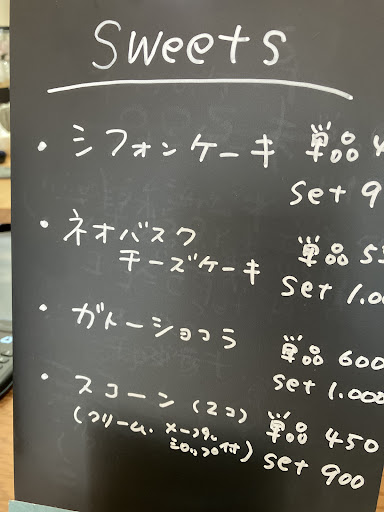 Sweets
・シフォンケーキ 単品 4
set 9
・ネオバスク
チーズケーキ 単品 5
set 1.00
・ガトーショコラ
単品 600
set 1.000
・スコーン(2コ) 単品 450
(クリーム、メープル
シロップ付) set 900